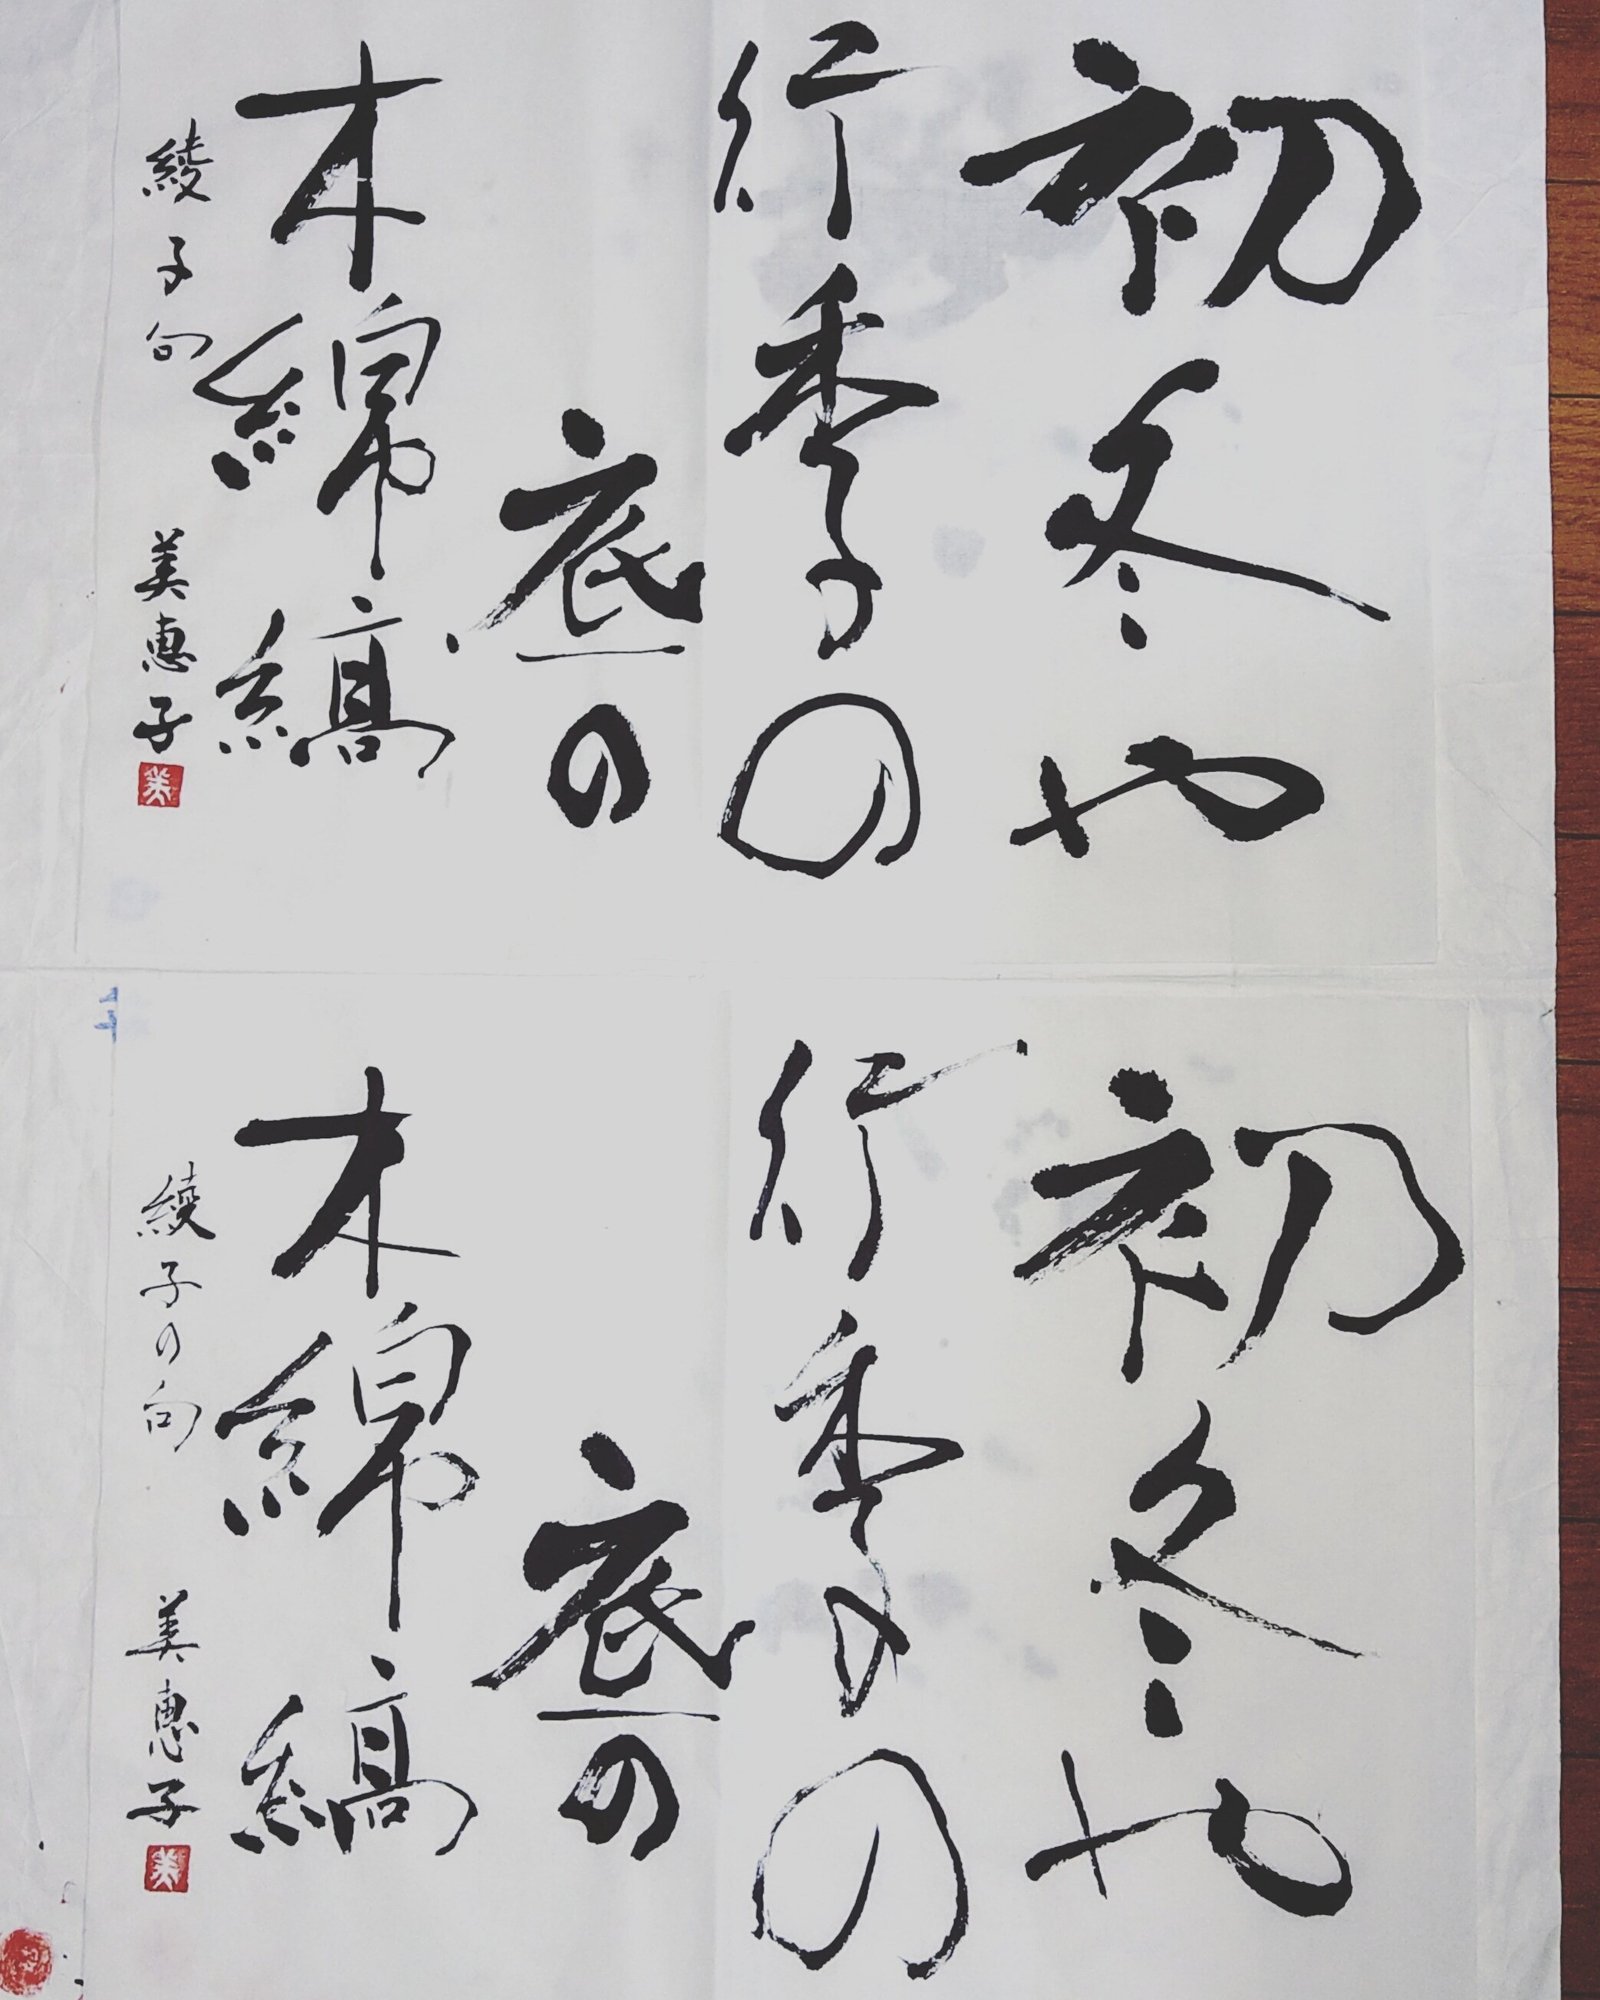 初冬や
行季の
底の
木綿縞
綾子句 美恵子
美
初冬や
行季の
底の
木綿縞
綾子の句 美恵子
美